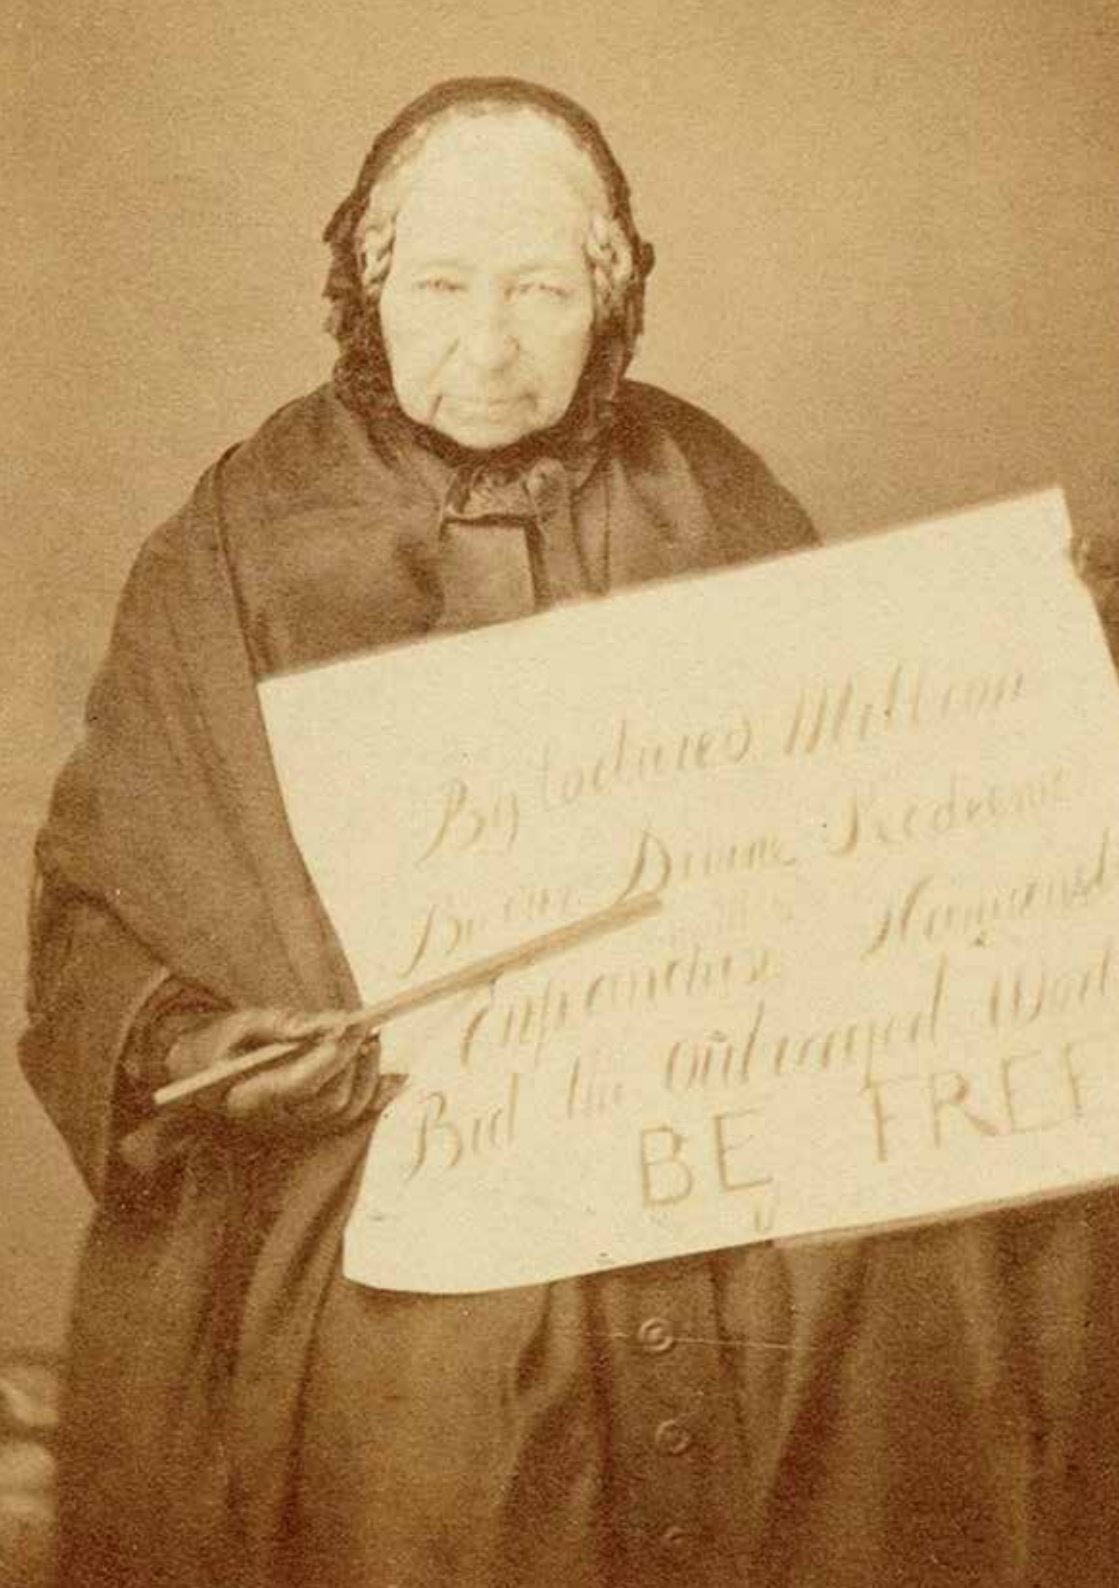 By tortured Million
By our Divine Redeeme
Enfranchise Humanit
Bid the Outraged World
BE FREE